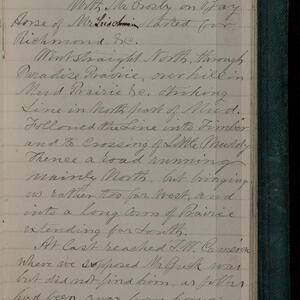 With Mr Crosby on Gray
Horse of Mr started for
Richmond &c.
Went straight North, through
Paradise Prairie, over hill in
Mud Prairie &c. striking
Line in North part of Mud.
Followed the Line into Timber
and to Crossing of Little Muddy
Thence a road running
mainly North, but bringing
us rather too far West, and
into a long arm of Prairie
extending far South.
At last reached
where we supposed Mr was
but did not find him, as folks
had been away from home